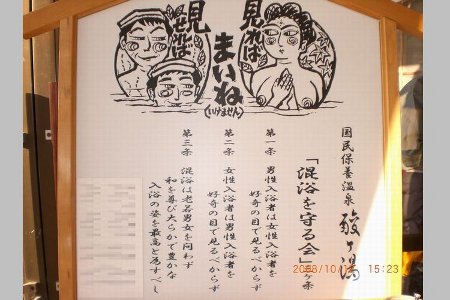 見ればまいね
(いけません)
見れば
国民保養温泉
酸ヶ湯
「混浴を守る会」
ヶ条
第一条 男性入浴者は女性入浴者を
好奇の目で見るべからず
第二条 女性入浴者は男性入浴者を
好奇の目で見るべからず
第三条 混浴は老若男女を問わず
和を尊び大らかで豊かな
入浴の姿を最高と為すべし
15:23